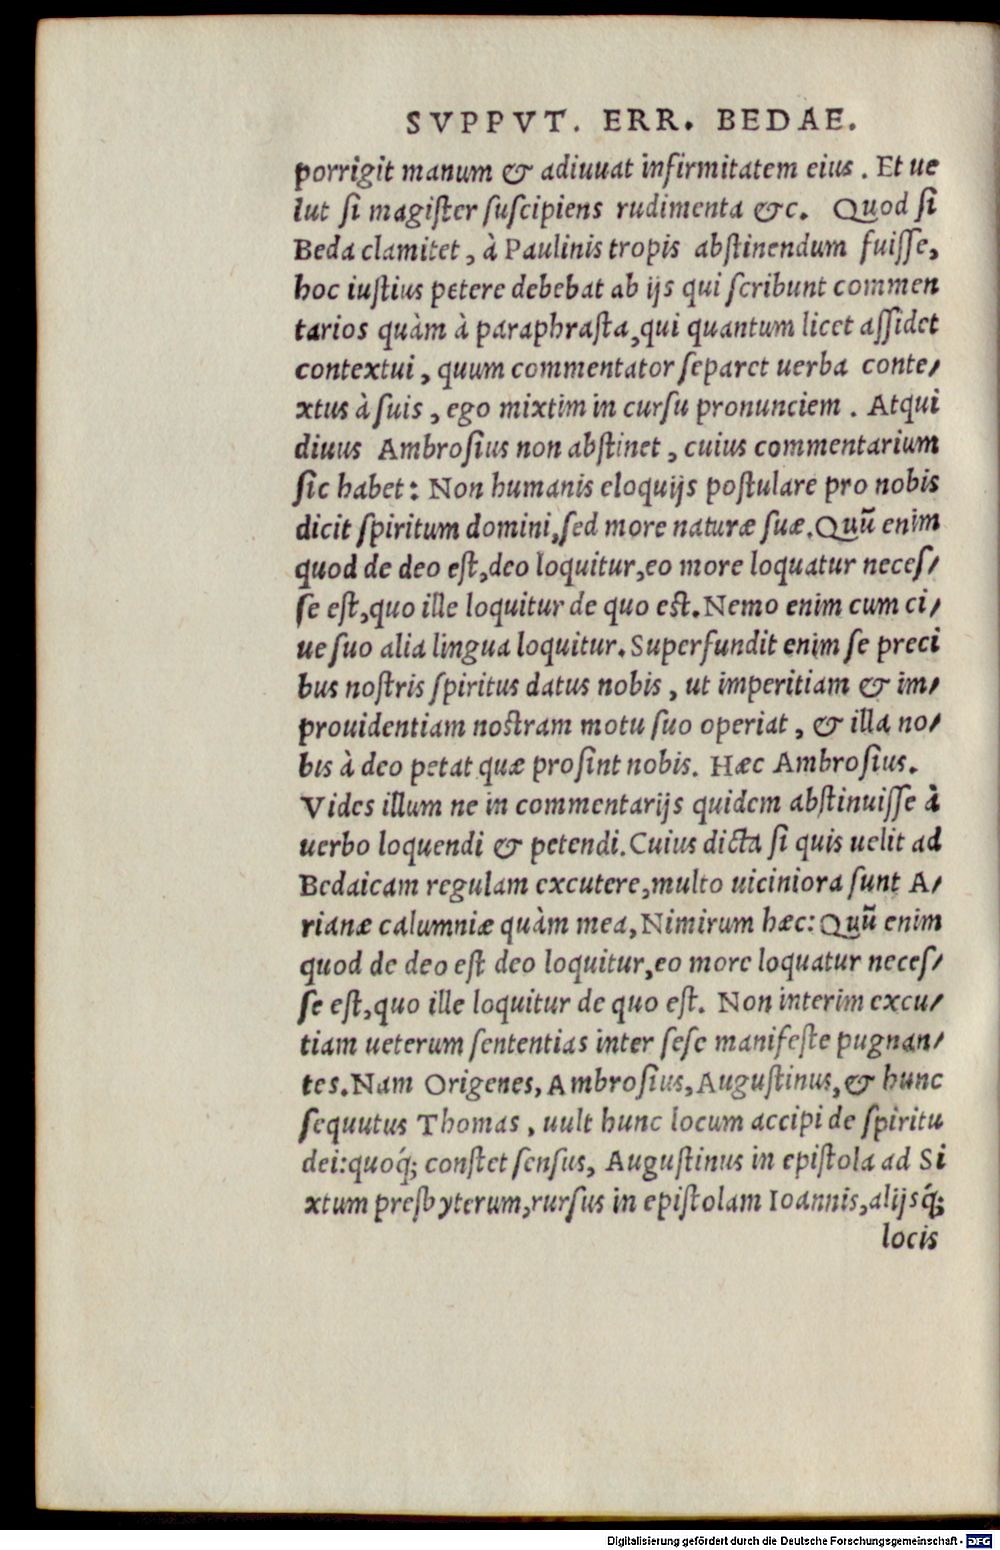 SVPPVT. ERR. BEDAE.
porrigit manum & adiuuat infirmitatem eius. Et ue
lut ſi magiſter ſuſcipiens rudimenta &c. Quod ſi
Beda clamitet, à Paulinis tropis abſtinendum fuiſſe,
hoc iuſtius petere debebat ab ijs qui ſcribunt commen
tarios quàm à paraphraſta, qui quantum licet aſſidet
contextui, quum commentator ſeparet uerba conte/
xtus à ſuis, ego mixtim in curſu pronunciem. Atqui
diuus Ambroſius non abſtinet, cuius commentarium
ſic habet: Non humanis eloquijs poſtulare pro nobis
dicit ſpiritum domini, ſed more naturæ ſuæ. Quũ enim
quod de deo eſt, deo loquitur, eo more loquatur neceſ/
ſe eſt, quo ille loquitur de quo est. Nemo enim cum ci/
ue ſuo alia lingua loquitur. Superfundit enim ſe preci
bus noſtris ſpiritus datus nobis, ut imperitiam & im/
prouidentiam nostram motu ſuo operiat, & illa no/
bis à deo petat quæ proſint nobis. Hæc Ambroſius.
Vides illum ne in commentarijs quidem abſtinuiſſe à
uerbo loquendi & petendi. Cuius dicta ſi quis uelit ad
Bedaicam regulam excutere, multo uiciniora ſunt A/
rianæ calumniæ quàm mea, Nimirum hæc: Quũ enim
quod de deo eſt deo loquitur, eo more loquatur neceſ/
ſe eſt, quo ille loquitur de quo eſt. Non interim excu/
tiam ueterum ſententias inter ſeſe manifeſte pugnan/
tes. Nam Origenes, Ambroſius, Auguſtinus, & hunc
ſequutus Thomas, uult hunc locum accipi de ſpiritu
dei: quoq́; conſtet ſenſus, Auguſtinus in epiſtola ad Si
xtum preſbyterum, rurſus in epiſtolam Ioannis, alijsq́;
locis
Digitalisierung gefördert durch die Deutsche Forschungsgemeinschaft - DFG